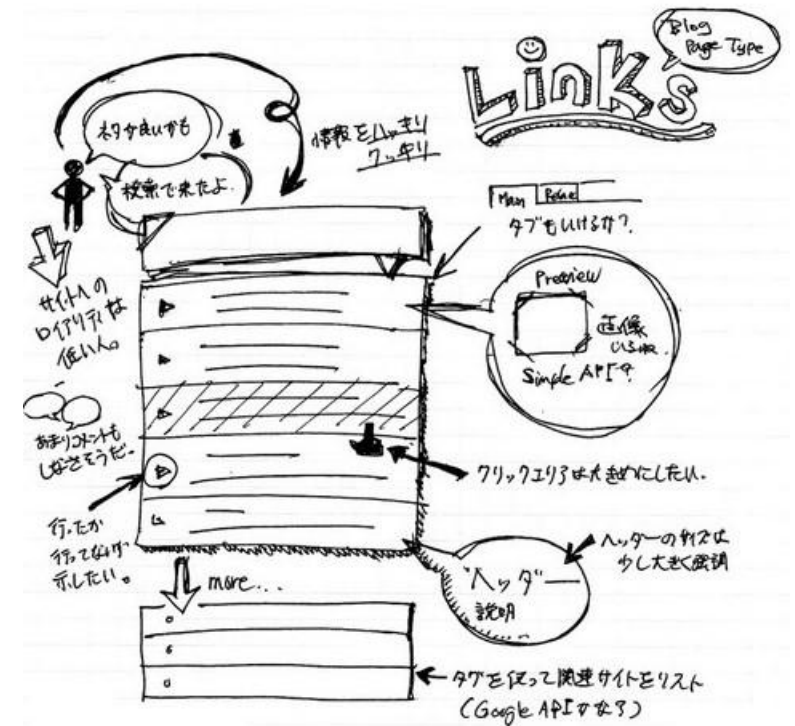 Links
Blog
Page Type
ネタが良いかも
検索で来たよ.
情報をハッキリ
クッキリ
Main
タブもいけるか?
サイトへの
ロイアリティは
低い人。
Preview
画像
いるね.
Simple APIか?
あまりコメントも
しなさそうだ..
クリックエリアは大きめにしたい.
行ったか
行ってないか
示したい。
ヘッダーのサイズは
少し大きく強調
ヘッダー
説明
more...
タグを使って関連サイトをリスト
(Google APIかなろ)